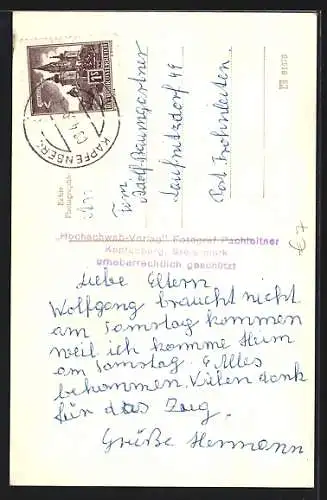 KAPFENBERG
Echte
Photographie
An
Fam.
Adolf Baumgartner
Laufnitzdorf 49
Post Frohnleiten.
"Hochschwab-Verlag" Fotograf Pachleitner
Kapfenberg, Steiermark
urheberrechtlich geschützt
€ 7
Liebe Eltern
Wolfgang braucht nicht
am Samstag kommen
weil ich komme Heim
am Samstag. Alles
bekommen. Vielen dank
für das Zeug.
Grüße Hermann